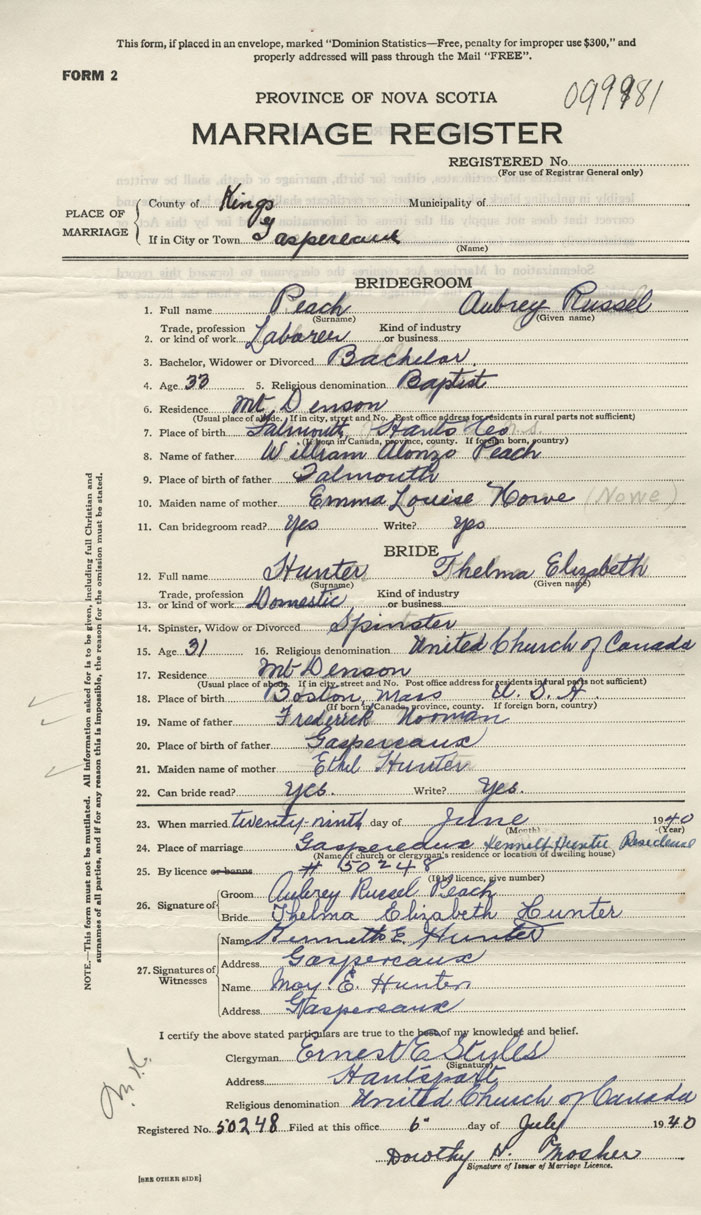 This form, if placed in an envelope, marked "Dominion Statistics—Free, penalty for improper use $300," and
properly addressed will pass through the Mail "FREE".
FORM 2
099981
PROVINCE OF NOVA SCOTIA
MARRIAGE REGISTER
REGISTERED No.
(For use of Registrar General only)
PLACE OF MARRIAGE
County of Kings Municipality of
If in City or Town Gaspereaux
(Name)
BRIDEGROOM
1. Full name Peach Aubrey Russel
(Surname) (Given name)
2. Trade, profession or kind of work Laborer Kind of industry or business
3. Bachelor, Widower or Divorced Bachelor
4. Age 33 5. Religious denomination Baptist
6. Residence Mt Denson
(Usual place of abode. If in city, street and No. Post office address for residents in rural parts not sufficient)
7. Place of birth Falmouth, Hants Co n.s.
(If born in Canada, province, county. If foreign born, country)
8. Name of father William Alonzo Peach
9. Place of birth of father Falmouth
10. Maiden name of mother Emma Louise Nowe (Nowe)
11. Can bridegroom read? Yes Write? Yes
BRIDE
12. Full name Hunter Thelma Elizabeth
(Surname) (Given name)
13. Trade, profession or kind of work Domestic Kind of industry or business
14. Spinster, Widow or Divorced Spinster
15. Age 31 16. Religious denomination United Church of Canada
17. Residence Mt Denson
(Usual place of abode. If in city, street and No. Post office address for residents in rural parts not sufficient)
18. Place of birth Boston, Mass U. S. A.
(If born in Canada, province, county. If foreign born, country)
19. Name of father Frederick Nooman
20. Place of birth of father Gaspereaux
21. Maiden name of mother Ethel Hunter
22. Can bride read? Yes. Write? Yes.
23. When married twenty-ninth day of June 1940
(Month) (Year)
24. Place of marriage Gaspereaux Kenneth Hunter Residence
(Name of church or clergyman's residence or location of dwelling house)
25. By licence or banns # 50248
(If by licence, give number)
26. Signature of
Groom Aubrey Russel Peach
Bride Thelma Elizabeth Hunter
27. Signatures of Witnesses
Name Kenneth E. Hunter
Address Gaspereaux
Name May. E. Hunter
Address Gaspereaux
I certify the above stated particulars are true to the best of my knowledge and belief.
Clergyman Ernest E Styles
(Signature)
Address Hantsport
Religious denomination United Church of Canada
Registered No. 50248 Filed at this office 6" day of July 1940
Dorothy H. Mosher
Signature of Issuer of Marriage Licence.
[SEE OTHER SIDE]
NOTE.—This form must not be mutilated. All information asked for is to be given, including full Christian and
surnames of all parties, and if for any reason this is impossible, the reason for the omission must be stated.